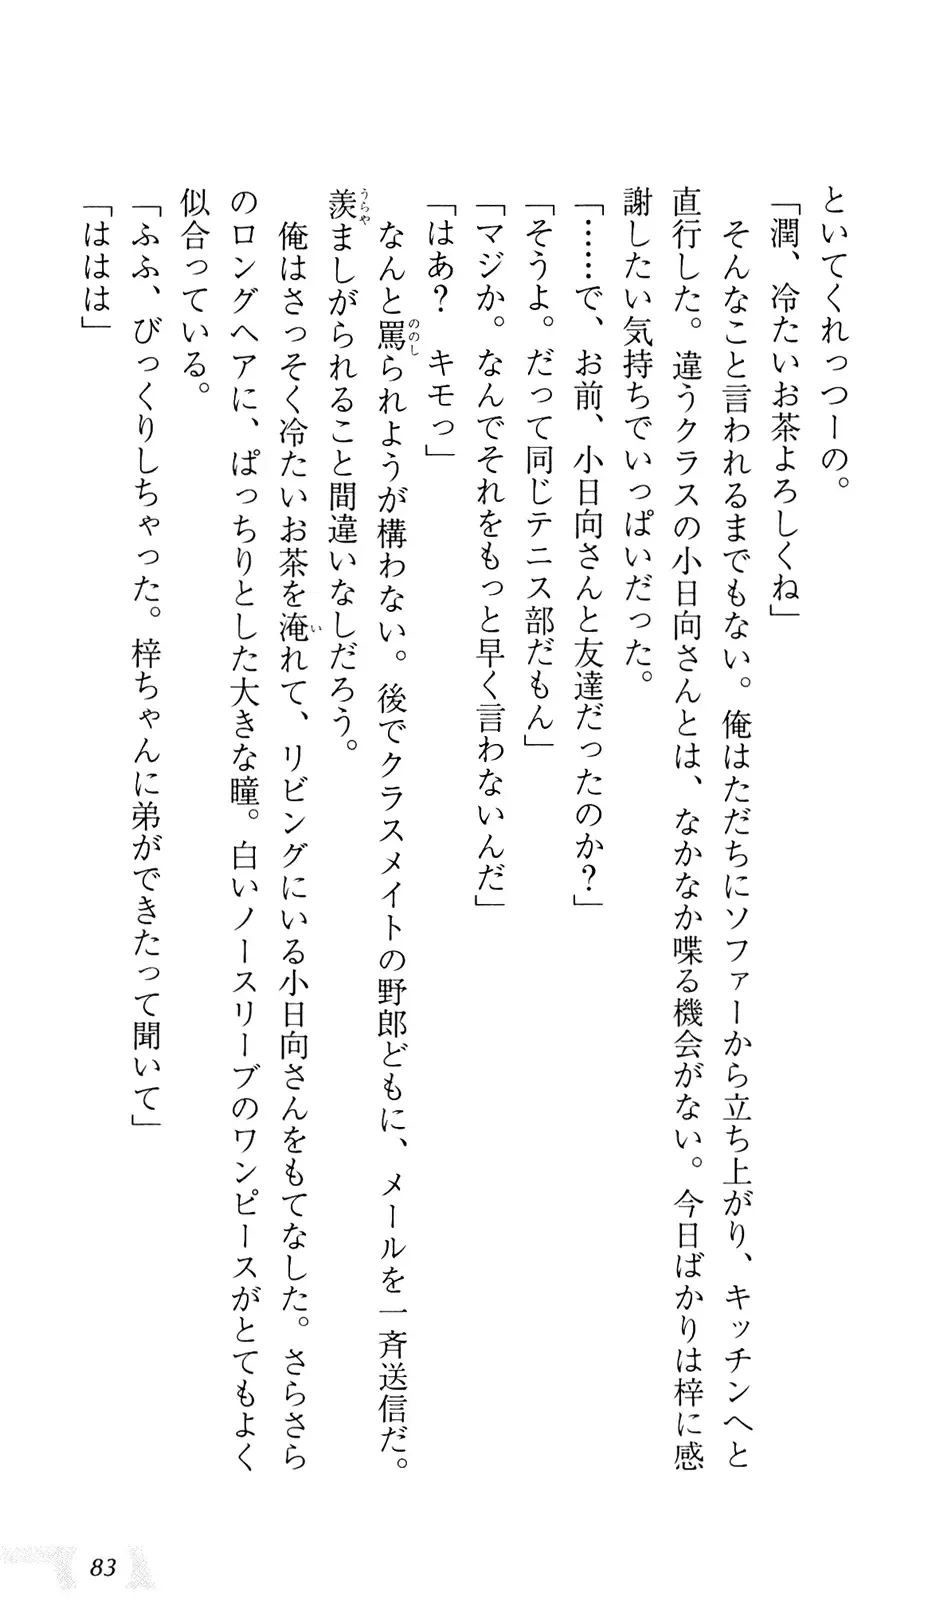 といてくれっつーの。
「潤、冷たいお茶よろしくね」
そんなこと言われるまでもない。俺はただちにソファーから立ち上がり、キッチンへと
直行した。違うクラスの小日向さんとは、なかなか喋る機会がない。今日ばかりは梓に感
謝したい気持ちでいっぱいだった。
「……で、お前、小日向さんと友達だったのか？」
「そうよ。だって同じテニス部だもん」
「マジか。なんでそれをもっと早く言わないんだ」
「はあ？　キモっ」
なんと罵られようが構わない。後でクラスメイトの野郎どもに、メールを一斉送信だ。
羨ましがられること間違いなしだろう。
俺はさっそく冷たいお茶を淹れて、リビングにいる小日向さんをもてなした。さらさら
のロングヘアに、ぱっちりとした大きな瞳。白いノースリーブのワンピースがとてもよく
似合っている。
「ふふ、びっくりしちゃった。梓ちゃんに弟ができたって聞いて」
「ははは」
83